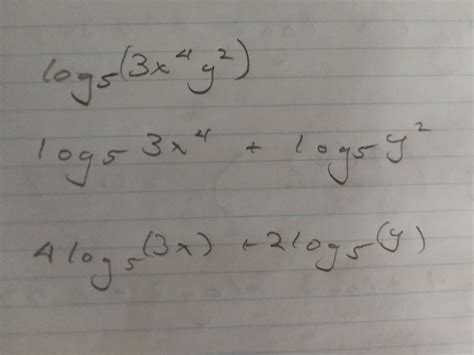 log₅(3x⁴y²)
log₅3x⁴ + log₅y²
4log₅(3x) + 2log₅(y)